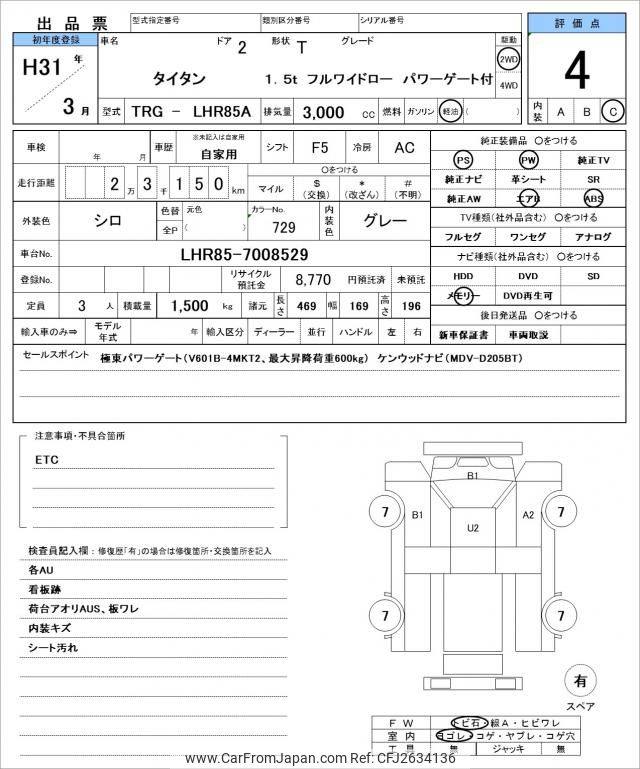 出品票 型式指定番号 類別区分番号 シリアル番号 評価点
初年度登録 車名 ドア 2 形状 T グレード 駆動
H31 年 2WD
タイタン 1.5t フルワイドロー パワーゲート付 4WD 4
3 月 型式 TRG - LHR85A 排気量 3,000 cc 燃料 ガソリン 軽油 ( ) 内装 A B C
車検 年 月 車歴 ※未記入は自家用 自家用 シフト F5 冷房 AC 純正装備品 〇をつける
PS PW 純正TV
走行距離 2 万 3 千 1 5 0 km 〇をつける
マイル $ (交換) * (改ざん) # (不明)
純正ナビ 革シート SR
純正AW エアB ABS
外装色 シロ 色替 元色 カラーNo. 内装色 グレー
全P ( ) 729
TV種類(社外品含む) 〇をつける
フルセグ ワンセグ アナログ
車台No. LHR85-7008529 ナビ種類(社外品含む) 〇をつける
登録No. リサイクル預託金 8,770 円預託済 未預託 HDD DVD SD
定員 3 人 積載量 1,500 kg 諸元 長さ 469 幅 169 高さ 196 メモリー DVD再生可
後日発送品 〇をつける
輸入車のみ⇒ モデル年式 年 輸入区分 ディーラー 並行 ハンドル 左 右 新車保証書 車両取説
セールスポイント 極東パワーゲート(V601B-4MKT2、最大昇降荷重600kg) ケンウッドナビ(MDV-D205BT)
注意事項・不具合箇所
ETC
B1
7 B1 U2 A2 7
7 7
検査員記入欄：修復歴「有」の場合は修復箇所・交換箇所を記入
各AU
看板跡
荷台アオリAUS、板ワレ
内装キズ
シート汚れ
有
スペア
FW トビ石・線A・ヒビワレ
室内 ヨゴレ・コゲ・ヤブレ・コゲ穴
工具 無 ジャッキ 無
www.CarFromJapan.com Ref: CFJ2634136